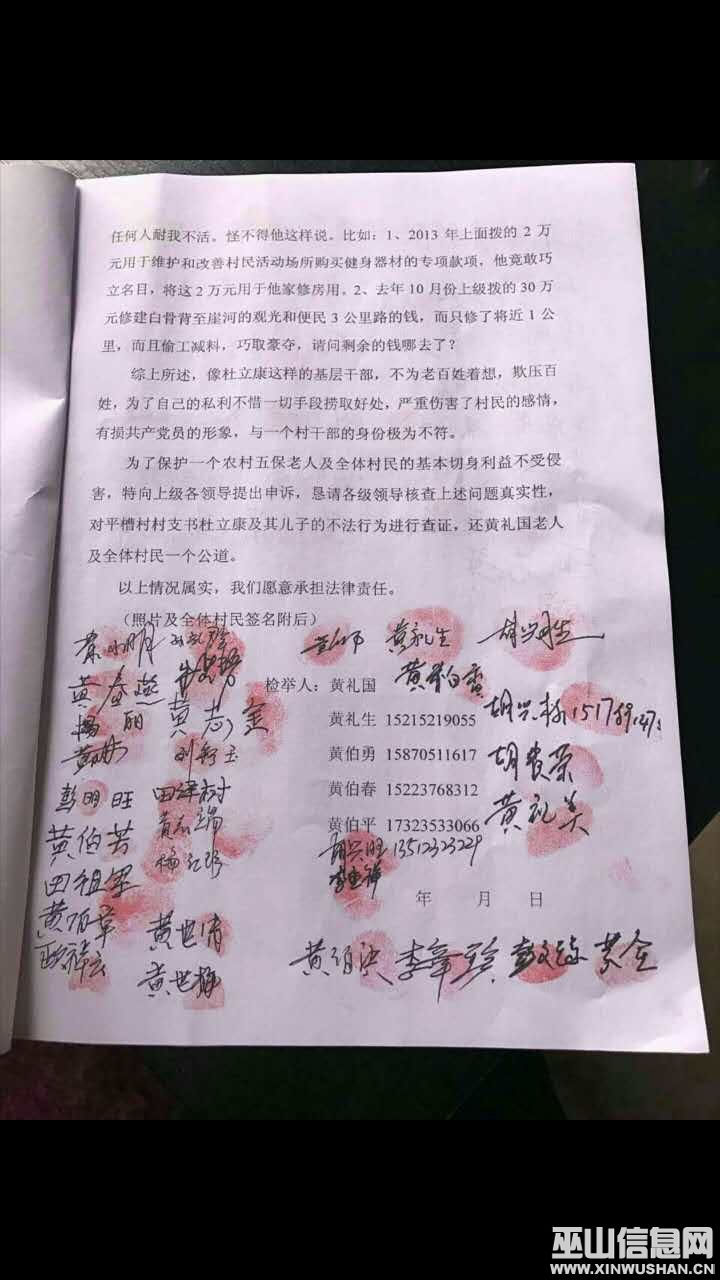 任何人耐我不活。怪不得他这样说。比如：1、2013 年上面拨的 2 万
元用于维护和改善村民活动场所购买健身器材的专项款项，他竟敢巧
立名目，将这 2 万元用于他家修房用。2、去年 10 月份上级拨的 30 万
元修建白骨背至崖河的观光和便民 3 公里路的钱，而只修了将近 1 公
里，而且偷工减料，巧取豪夺，请问剩余的钱哪去了？
综上所述，像杜立康这样的基层干部，不为老百姓着想，欺压百
姓，为了自己的私利不惜一切手段捞取好处，严重伤害了村民的感情，
有损共产党员的形象，与一个村干部的身份极为不符。
为了保护一个农村五保老人及全体村民的基本切身利益不受侵
害，特向上级各领导提出申诉，恳请各级领导核查上述问题真实性，
对平槽村村支书杜立康及其儿子的不法行为进行查证，还黄礼国老人
及全体村民一个公道。
以上情况属实，我们愿意承担法律责任。
（照片及全体村民签名附后）
黄礼生
检举人：黄礼国
黄礼生 15215219055
黄伯勇 15870511617
胡贵荣
黄伯春 15223768312
彭明旺
黄伯平 17323533066
黄礼美
黄伯芳
胡兴旺 13512323229
年 月 日
黄世清
黄世梅
黄金
巫山信息网
WWW.XINWUSHAN.CN